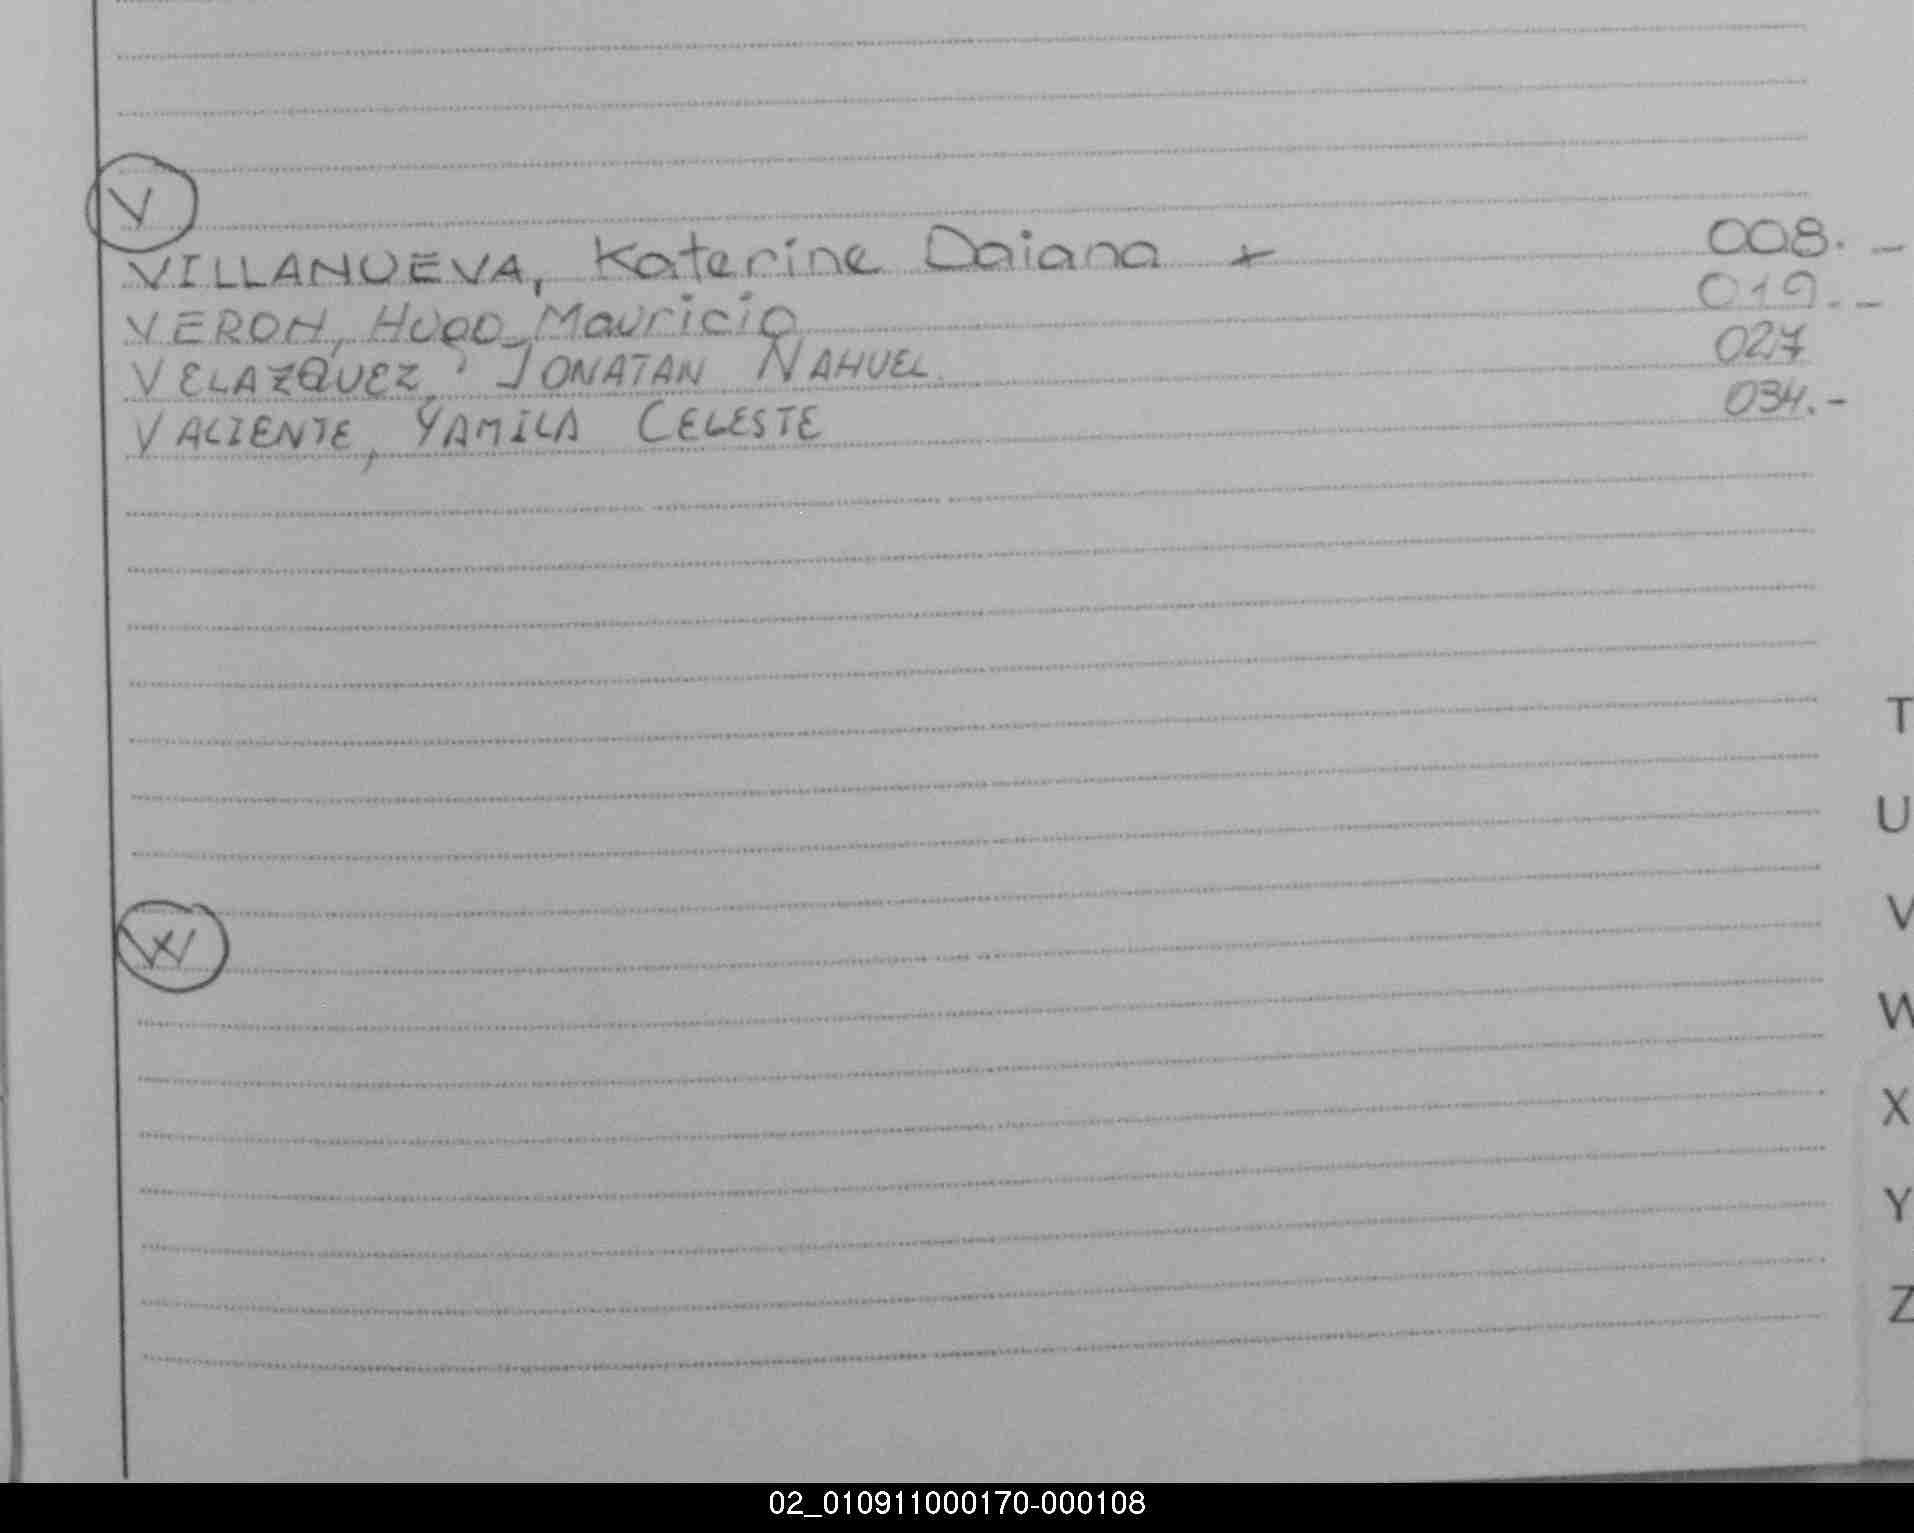 V
VILLANUEVA, Katerine Daiana + 008. –
VERON, Hugo Mauricio 019. –
VELAZQUEZ, JONATAN NAHUEL. 027
VALIENTE, YAMILA CELESTE 034.-
W
T
U
V
W
X
Y
Z
02_010911000170-000108